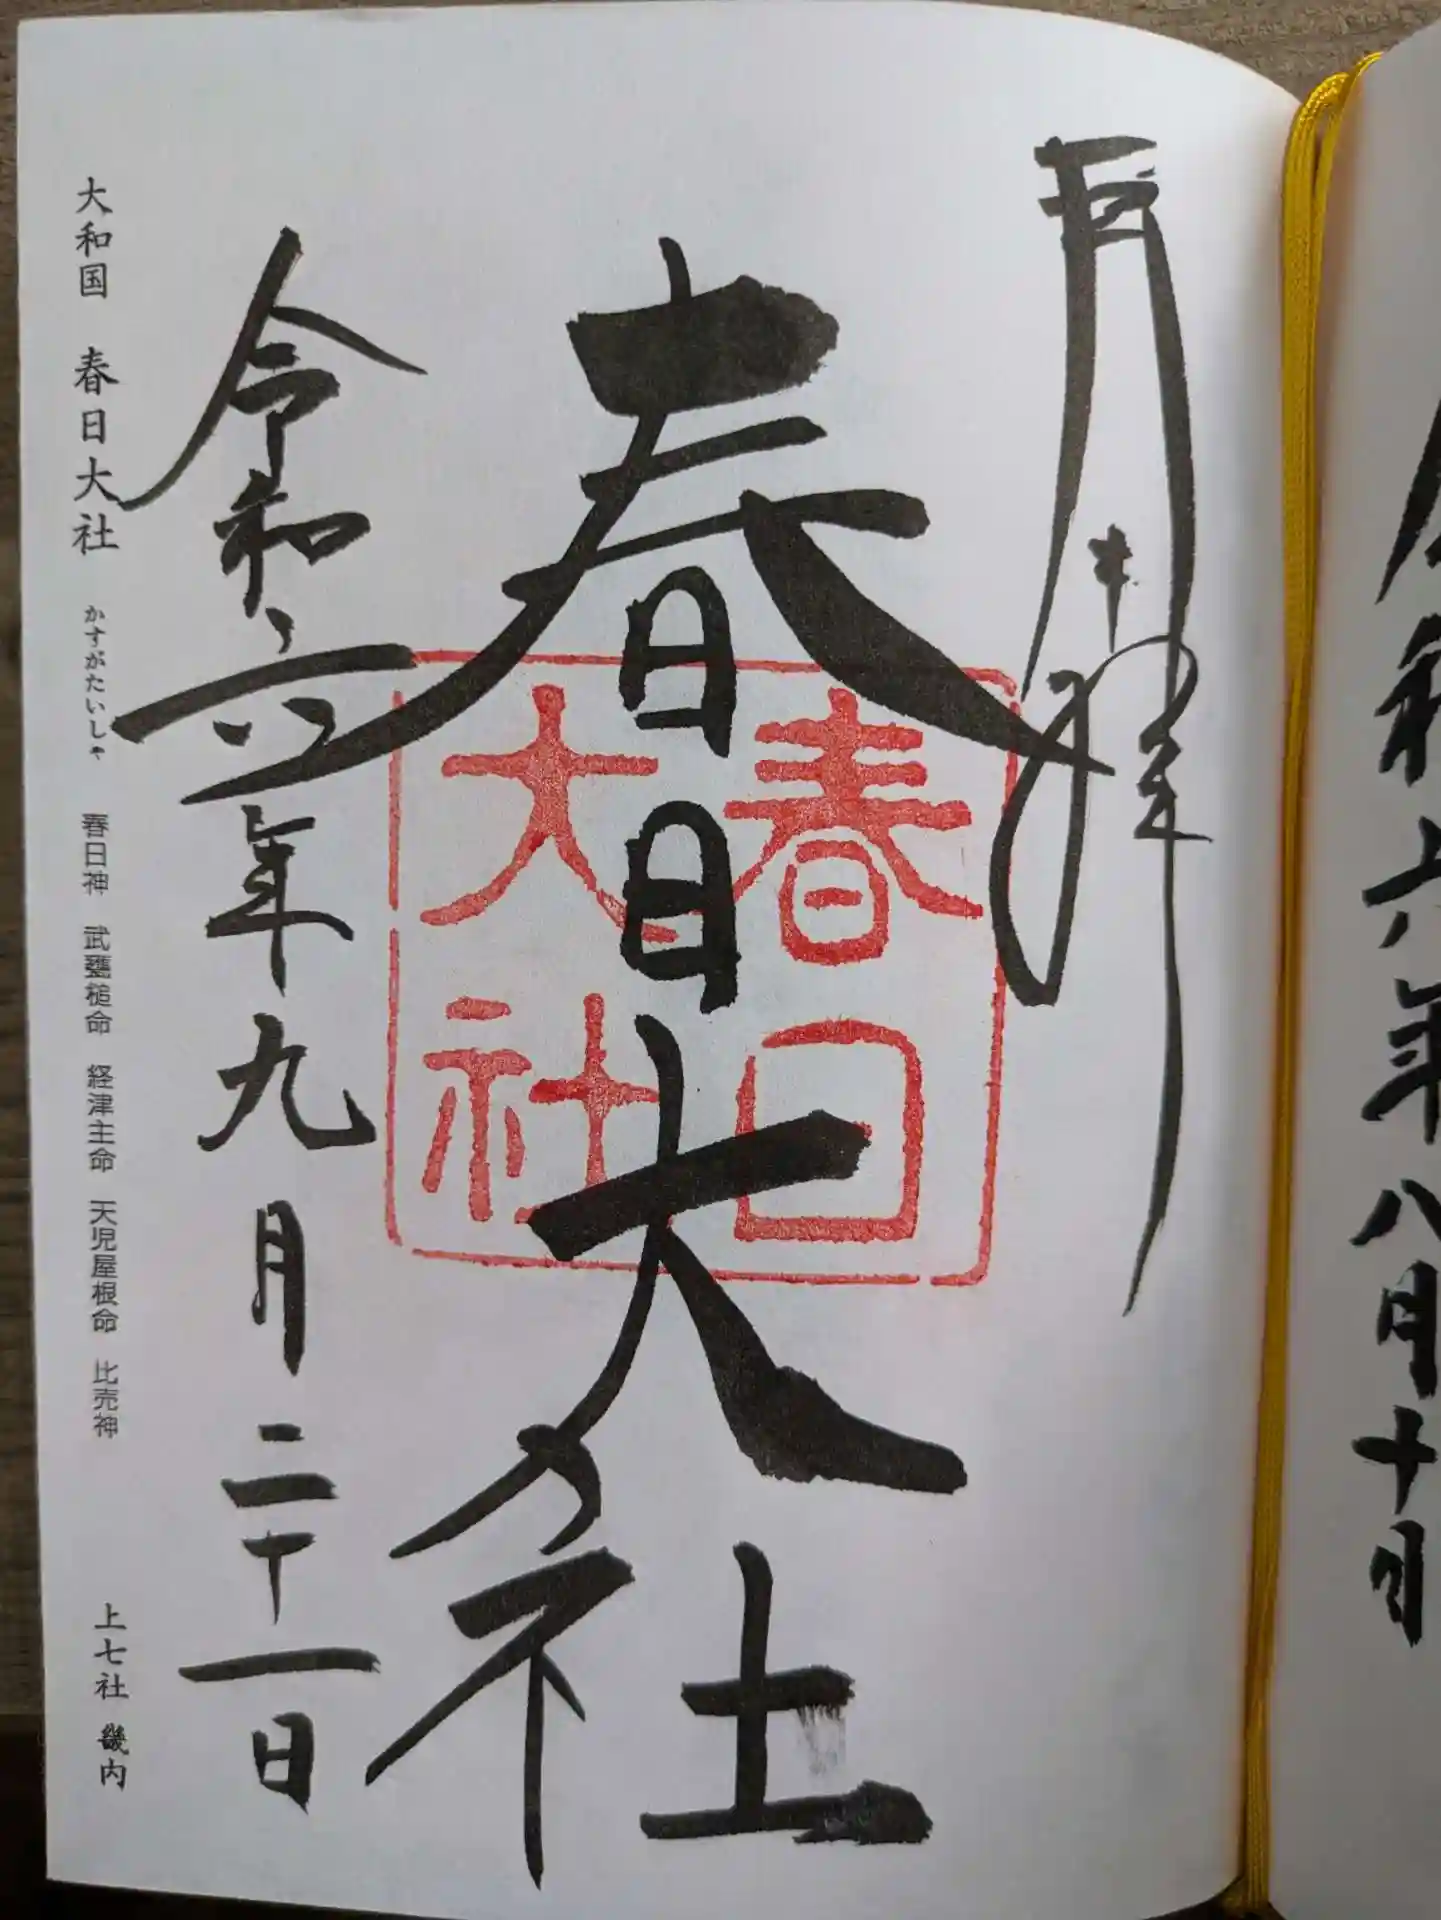 奉拝
春日大社
春日
大社
令和六年九月二十一日
大和国 春日大社 かすがたいしゃ 春日神 武甕槌命 経津主命 天児屋根命 比売神 上七社 畿内
令和六年八月十